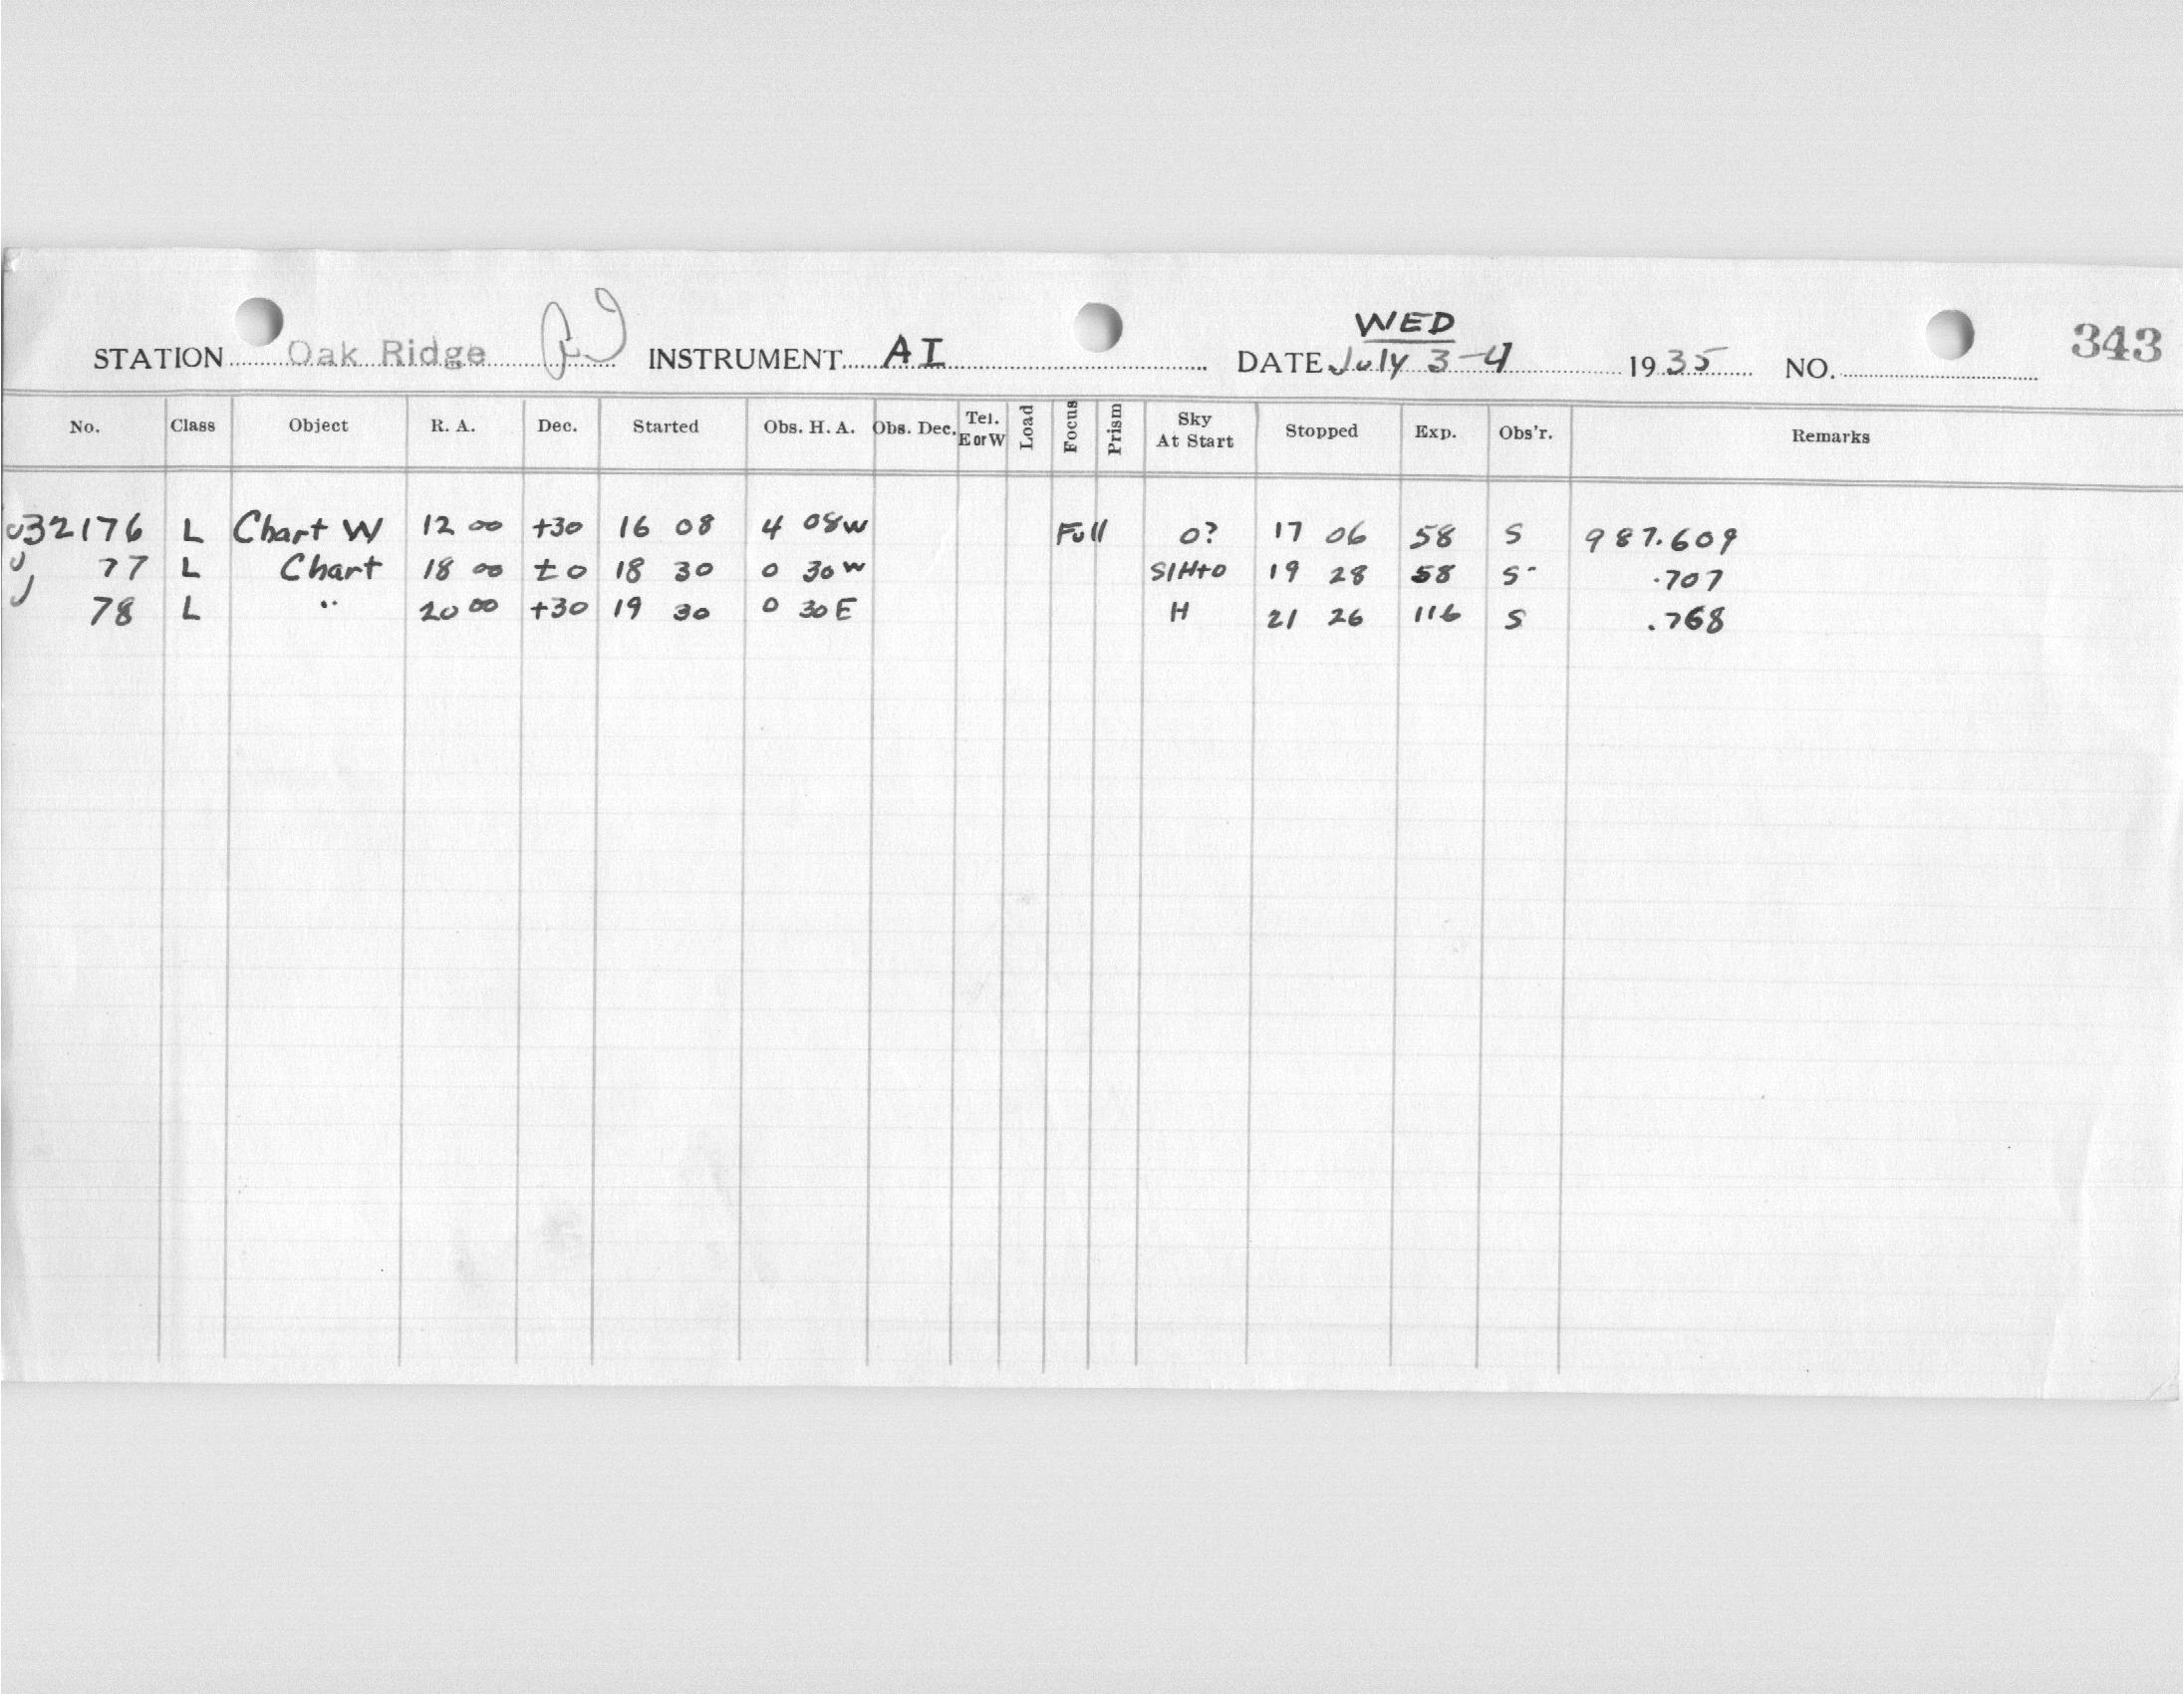 WED
STATION Oak Ridge INSTRUMENT AI DATE July 3-4 1935 NO. 343
No. Class Object R. A. Dec. Started Obs. H. A. Obs. Dec. Tel. E or W Load Focus Prism Sky At Start Stopped Exp. Obs'r. Remarks
32176 L Chart W 12 00 +30 16 08 4 08W Full 0? 17 06 58 S 987.609
77 L Chart 18 00 ±0 18 30 0 30W SlH+0 19 28 58 S .707
78 L " 20 00 +30 19 30 0 30E H 21 26 116 S .768